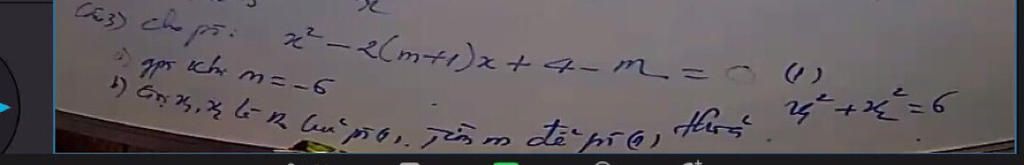 Câu 3) cho pt: x² - 2(m+1)x + 4 - m = 0 (1)
a) gpt khi m = -6
b) Gọi x₁, x₂ là n₀ của pt (1), Tìm m để pt (1) thỏa x₁² + x₂² = 6